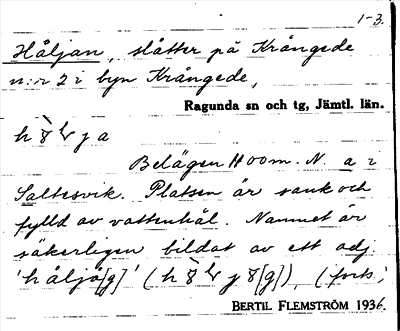 1-3.
Håljan, slåtter på Krångede
n:r 2 i byn Krångede,
Ragunda sn och tg, Jämtl. län.
Belägen 400 m. N. a i
Saltesvik. Platsen är sank och
fylld av vattenhål. Namnet är
säkerligen bildat av ett adj.
'håljå[g]' (forts.)
BERTIL FLEMSTRÖM 1936.